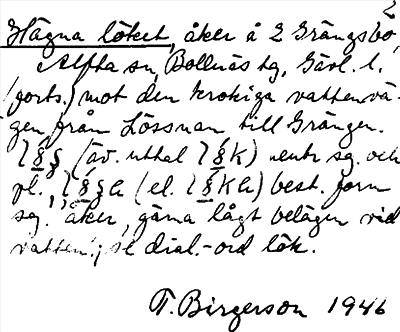 2
Hägna löket, åker å 2 Grängsbo,
Alfta sn, Bollnäs tg, Gävl. l.
(forts.) mot den krokiga vattenvä-
gen från Lössnan till Grängen.
(äv. uttal) neutr. sg. och
pl., (el. best. form
sg. 'åker, gärna lågt belägen vid
vatten'; se dial.-ord lök.
T. Birgerson 1946